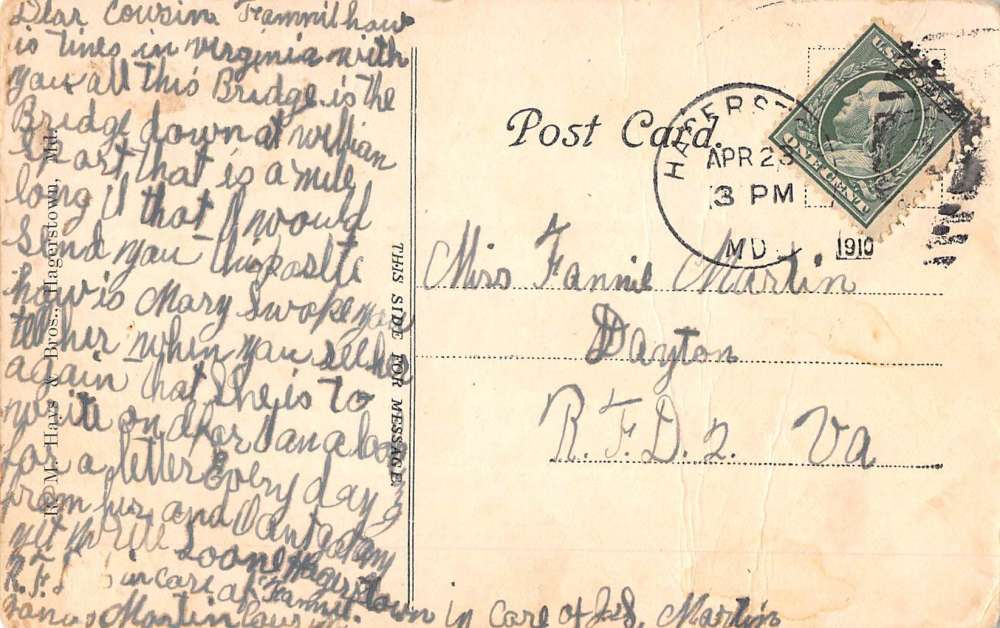 Dear Cousin Fannil how
is times in virginia with
you all this Bridge is the
Bridge down at willian
sport that is a mile
long that I would
send you this
how is Mary Swope you
tell her when you see her
again that she is to
write and for
for a letter Every day
from her and
yet write Soone Hagerstown
R. F. in care of Fannie
Martin in care of J.S. Martin
R. M. Hays & Bros., Hagerstown, Md.
THIS SIDE FOR MESSAGE
Post Card.
HAGERST
APR 23
3 PM
MD.
1910
U.S. POSTAGE
ONE CENT
Miss Fannie Martin
Dayton
R. F. D. 2. Va